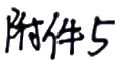 附件5